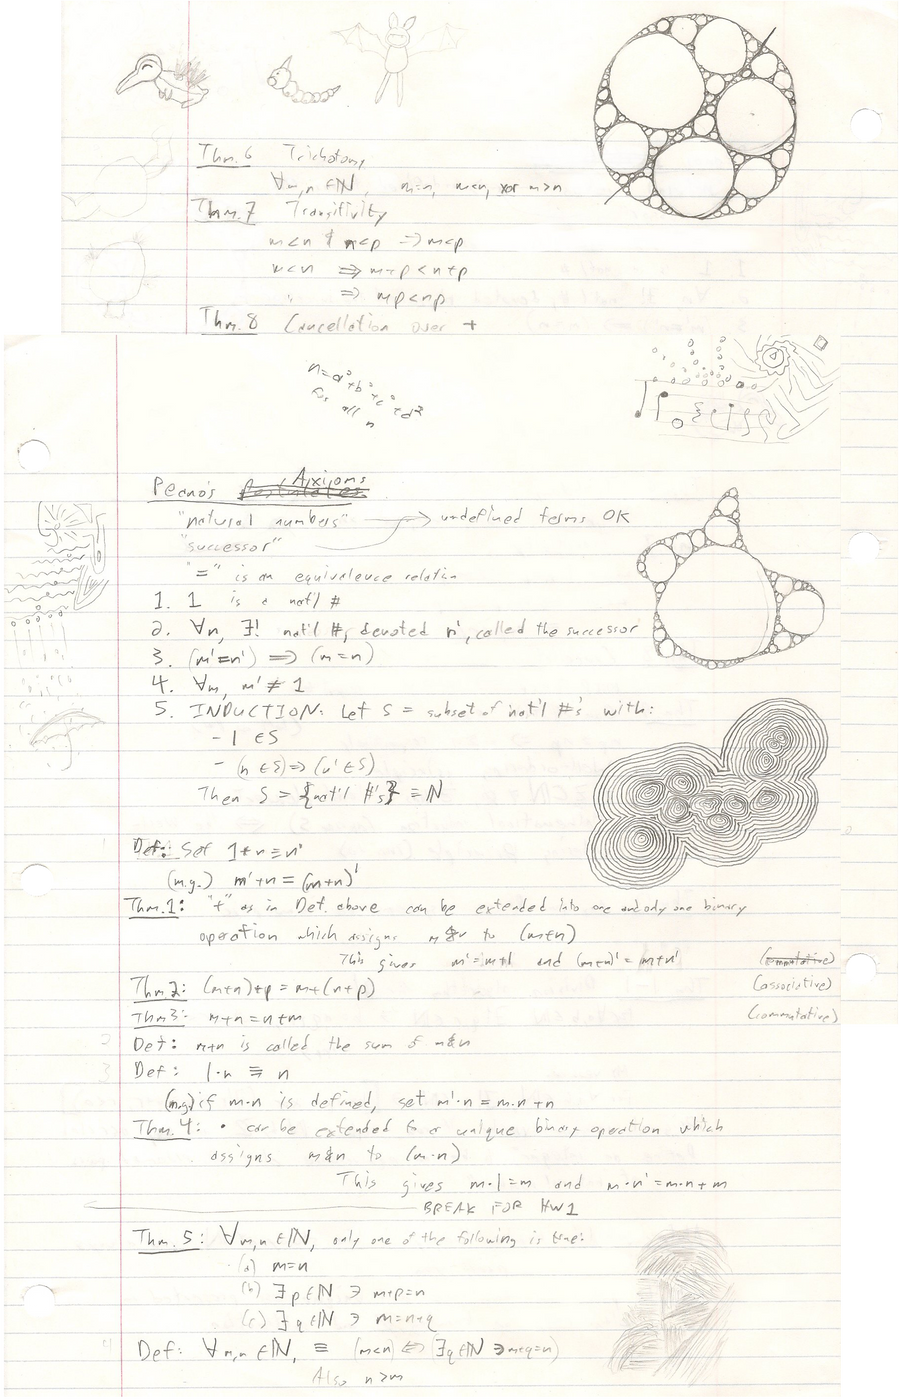 Thm. 6 Trichotomy
∀m,n ∈ ℕ, m=n, m<n, xor m>n
Thm. 7 Transitivity
m<n & n<p ⇒ m<p
m<n ⇒ m+p < n+p
" ⇒ mp<np
Thm. 8 Cancellation over +
n=a²+b²+c²+d²
for all
n
Peano's Axixoms
"natural numbers" → undefined terms OK
"successor"
"=" is an equivalence relation
1. 1 is a nat'l #
2. ∀n, ∃! nat'l #, denoted n', called the successor
3. (m'=n') ⇒ (m=n)
4. ∀m, m' ≠ 1
5. INDUCTION: Let S = subset of nat'l #'s with:
- 1 ∈ S
- (n ∈ S) ⇒ (n' ∈ S)
Then S = {nat'l #'s} ≡ ℕ
Def: Set 1+n ≡ n'
(m.g.) m'+n = (m+n)'
Thm. 1: "+" as in Def. above can be extended into one and only one binary
operation which assigns m&n to (m+n)
This gives m'=m+1 and (m+n)' = m+n'
(commutative)
Thm 2: (m+n)+p = m+(n+p) (associative)
Thm 3: m+n=n+m (commutative)
Def: m+n is called the sum of m&n
Def: 1·n ≡ n
(m.g.) if m·n is defined, set m'·n = m·n+n
Thm. 4: · can be extended to a unique binary operation which
assigns m&n to (m·n)
This gives m·1=m and m·n'=m·n+m
BREAK FOR HW1
Thm. 5: ∀m,n ∈ ℕ, only one of the following is true:
(a) m=n
(b) ∃p ∈ ℕ ∋ m+p=n
(c) ∃q ∈ ℕ ∋ m=n+q
Def: ∀m,n ∈ ℕ, ≡ (m<n) ⇔ (∃q ∈ ℕ ∋ m+q=n)
Also n>m